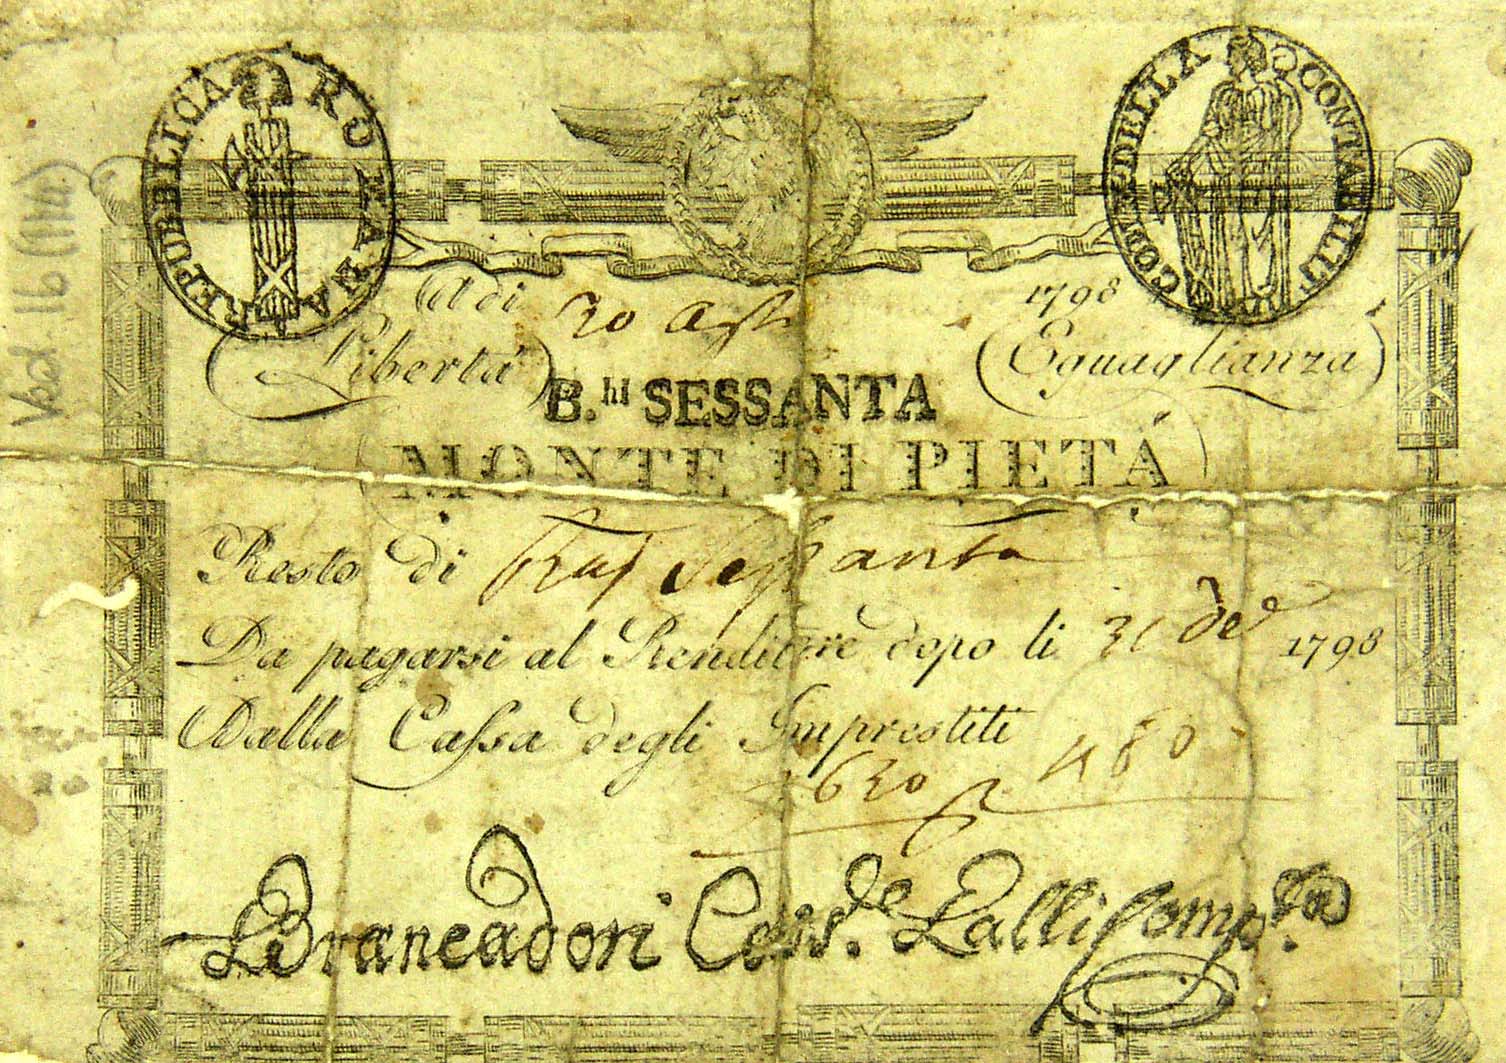 REPUBBLICA ROMANA
CODE DELLA CONTABILIT
A di 30 Ag.to 1798
Libertá Eguaglianza
B.hi SESSANTA
MONTE DI PIETÁ
Resto di Sessanta
Da pagarsi al Renditore dopo li 31 1798
Dalla Cassa degli Imprestiti
630 480
Brancadori Cass.re Lalli Comp.ta
Ved. 16 (11a)